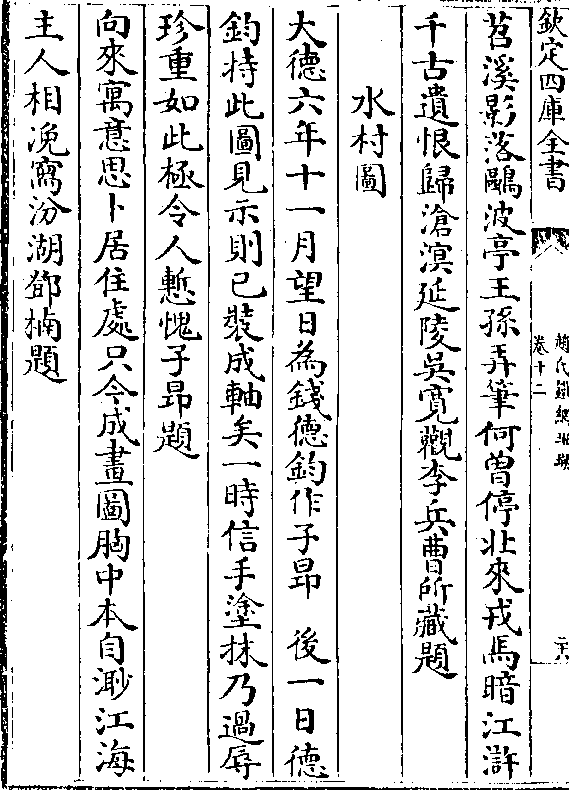 欽定四庫全書
趙氏鐵網珊瑚
卷十二
苕溪影落鷗波亭王孫弄筆何曽停壯來戎馬暗江滸
千古遺恨歸滄溟延陵吳寛觀李兵曹所藏題
水村圖
大德六年十一月望日為錢德鈞作子昂 後一日德
鈞持此圖見示則已裝成軸矣一時信手塗抹乃過辱
珍重如此極令人慙愧子昂題
向來寓意思卜居住處只今成畫圖胸中本自渺江海
主人相况窩汾湖鄧椨題